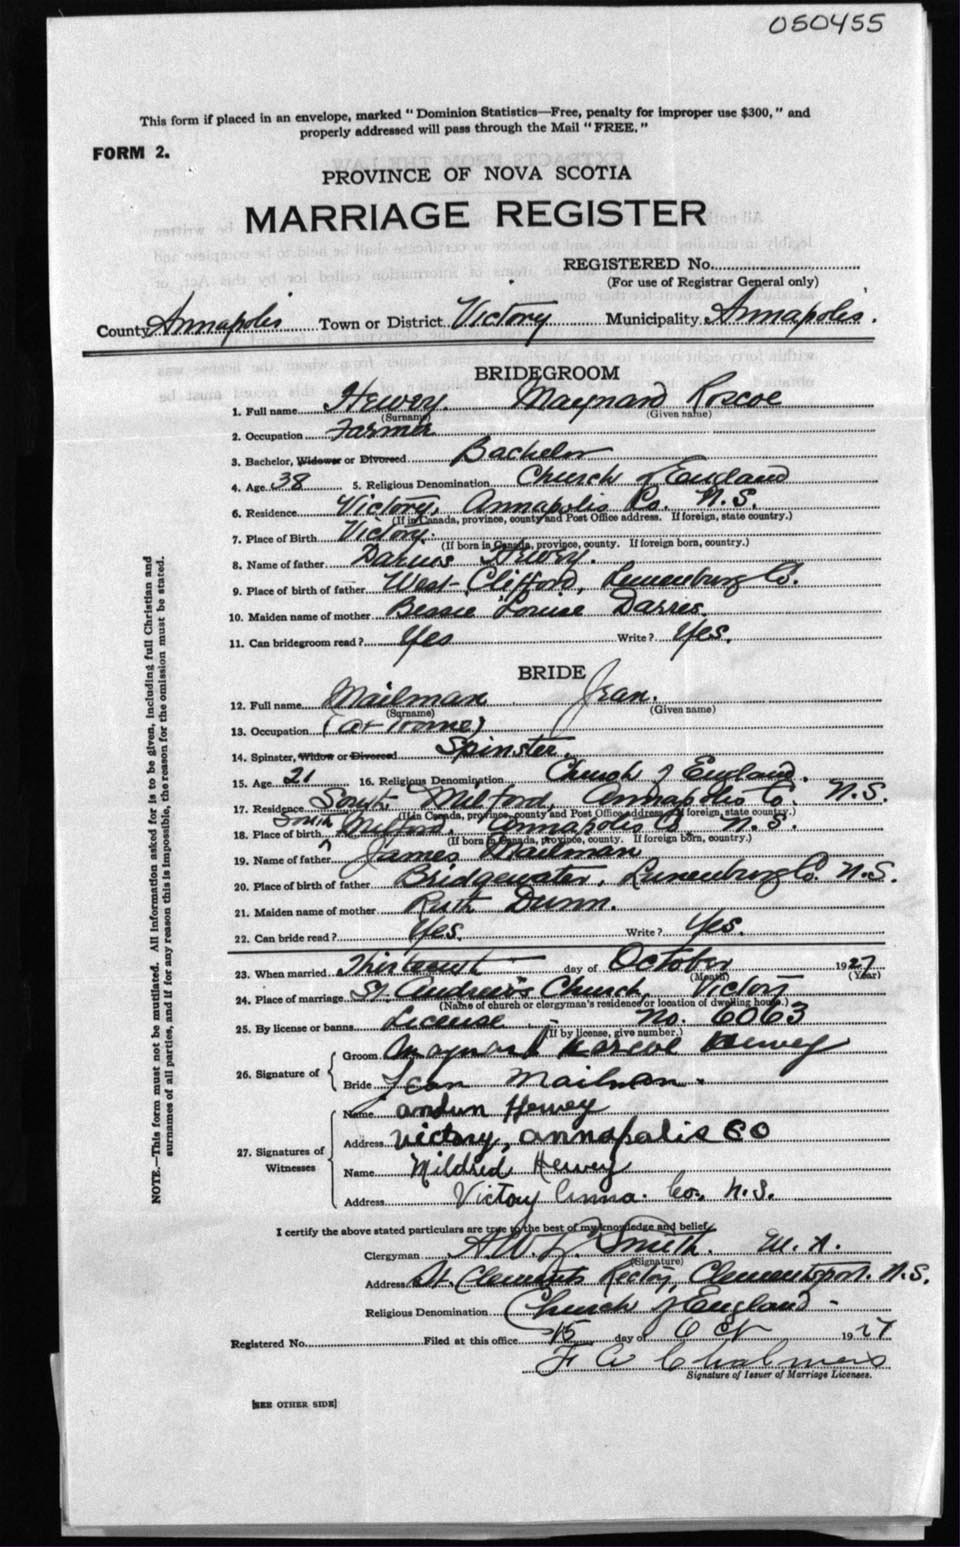 050455
This form if placed in an envelope, marked "Dominion Statistics—Free, penalty for improper use $300," and
properly addressed will pass through the Mail "FREE."
FORM 2.
PROVINCE OF NOVA SCOTIA
MARRIAGE REGISTER
REGISTERED No.
(For use of Registrar General only)
County Annapolis Town or District Victory Municipality Annapolis.
BRIDEGROOM
1. Full name Hewey. Maynard Roscoe
(Surname) (Given name)
2. Occupation Farmer
3. Bachelor, Widower or Divorced Bachelor
4. Age 38 5. Religious Denomination Church of England
6. Residence Victory, Annapolis Co. N.S.
(If in Canada, province, county and Post Office address. If foreign, state country.)
7. Place of Birth Victory.
(If born in Canada, province, county. If foreign born, country.)
8. Name of father Darius Hewey.
9. Place of birth of father West Clifford, Lunenburg Co.
10. Maiden name of mother Bessie Louise Darres.
11. Can bridegroom read? Yes Write? Yes.
BRIDE
12. Full name Mailman Jean.
(Surname) (Given name)
13. Occupation (at Home)
14. Spinster, Widow or Divorced Spinster.
15. Age 21 16. Religious Denomination Church of England.
17. Residence South Milford, Annapolis Co. N.S.
(If in Canada, province, county and Post Office address. If foreign, state country.)
18. Place of birth South Milford, Annapolis Co. N.S.
(If born in Canada, province, county. If foreign born, country.)
19. Name of father James Mailman
20. Place of birth of father Bridgewater, Lunenburg Co. N.S.
21. Maiden name of mother Ruth Dunn.
22. Can bride read? Yes. Write? Yes.
23. When married Thirteenth day of October 1927
(Month) (Year)
24. Place of marriage St. Andrew's Church, Victory
(Name of church or clergyman's residence or location of dwelling house.)
25. By license or banns License No. 6063
(If by license, give number.)
26. Signature of
Groom Maynard Roscoe Hewey
Bride Jean Mailman.
27. Signatures of Witnesses
Name Hewey
Address Victory, annapolis CO
Name Mildred Hewey
Address Victory Anna. Co., N.S.
I certify the above stated particulars are true to the best of my knowledge and belief.
Clergyman A.W.L. Smith. M.A.
(Signature)
Address St. Clements Rectory, Clementsport. N.S.
Religious Denomination Church of England -
Registered No. Filed at this office 15 day of Oct 1927
F A Chalmers
Signature of Issuer of Marriage Licenses.
[SEE OTHER SIDE]
NOTE.—This form must not be mutilated. All information asked for is to be given, including full Christian and
surnames of all parties, and if for any reason this is impossible, the reason for the omission must be stated.